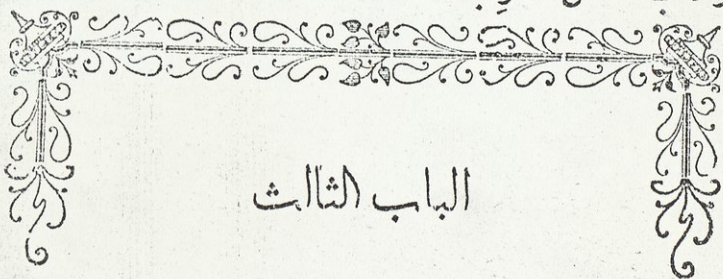 الباب الثالث